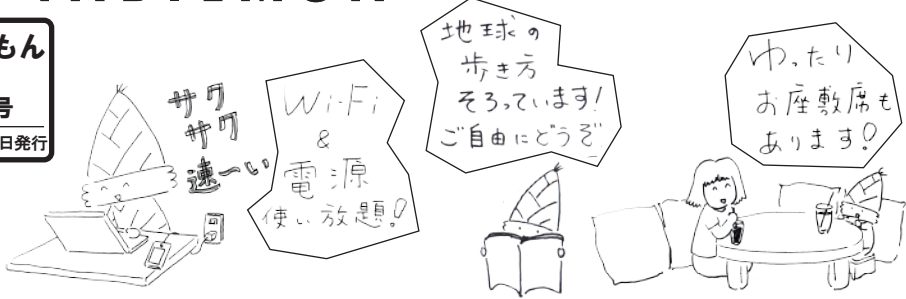 もん
号
日発行
サク
サク
速〜い
Wi-Fi
&
電源
使い放題!
地球の
歩き方
そろっています!
ご自由にどうぞ
ゆったり
お座敷席も
あります!